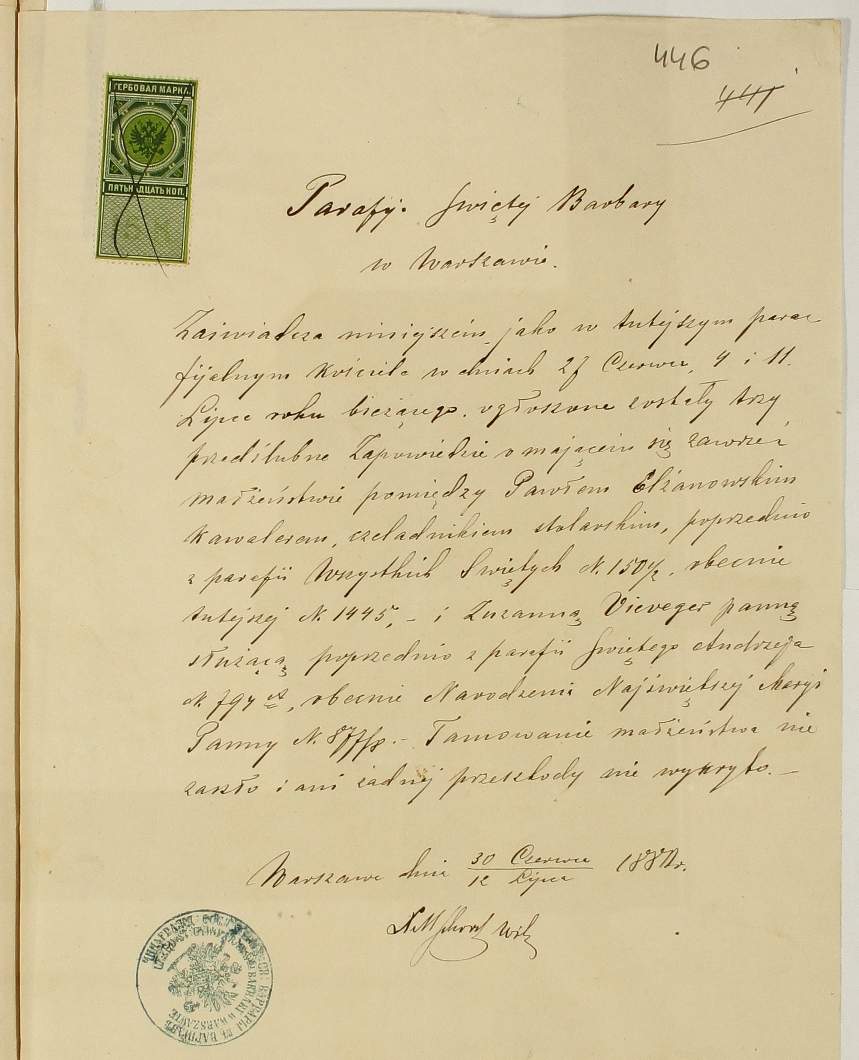 446
441
ГЕРБОВАЯ МАРКА.
ПЯТЬНАДЦАТЬ КОП.
Parafÿ. Swiętej Barbary
w Warszawie.
Zaświadcza niniejszem, jako w tutejszym para=
fijalnym Kościele w dniach 27 Czerwca, 4 i 11.
Lipca roku bieżącego, ogłoszone zostały trzy
przedślubne Zapowiedzie o mającem się zawrzeć
małżeństwie pomiędzy Pawłem Elżanowskim
kawalerem, czeladnikiem stolarskim, poprzednio
z parafii Wszystkich Swiętych N. 150½, obecnie
tutejszej N. 1445, – i Zuzanną Vieweger panną
służącą, poprzednio z parafii Swiętego Andrzeja
N. 794, obecnie Narodzenia Najświętszej Maryi
Panny N. – Tamowanie małżeństwa nie
zaszło i ani żadnej przeszkody nie wykryto. –
Warszawa dnia 30 Czerwca / 12 Lipca 188 r.
СВ: ВАРВАРЫ ВЪ ВАРШАВѢ
BARBARY W WARSZAWIE